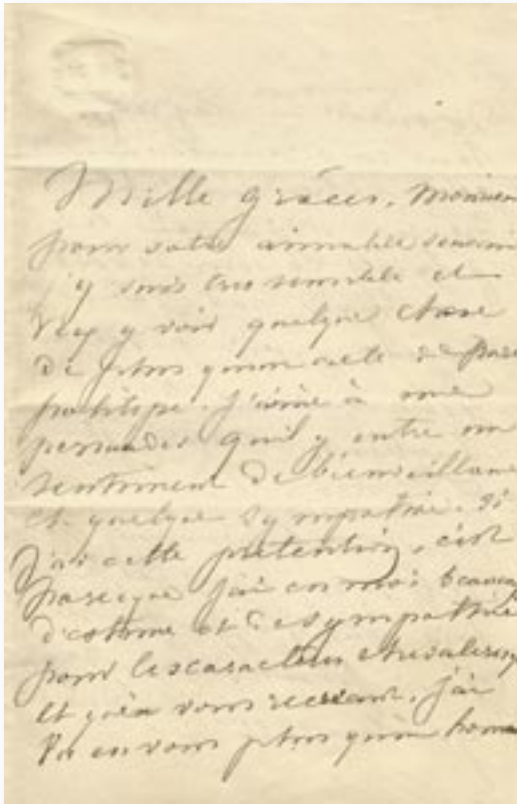 Mille grâces, Monsieur
pour votre aimable souvenir
j'y suis très sensible et
veux y voir quelque chose
de plus qu'un acte de pure
politesse. J'aime à me
persuader qu'il y entre un
sentiment de bienveillance
et quelque sympathie. Si
j'ai cette prétention, c'est
parceque j'ai en moi beaucoup
d'estime et de sympathie
pour les caractères chevaleresq
et qu'en vous recevant, j'ai
vu en vous plus qu'un homme